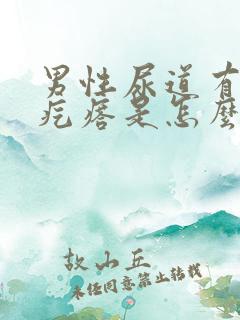 男性尿道有
疙瘩是怎麼
故山丘
未经同意禁止转载